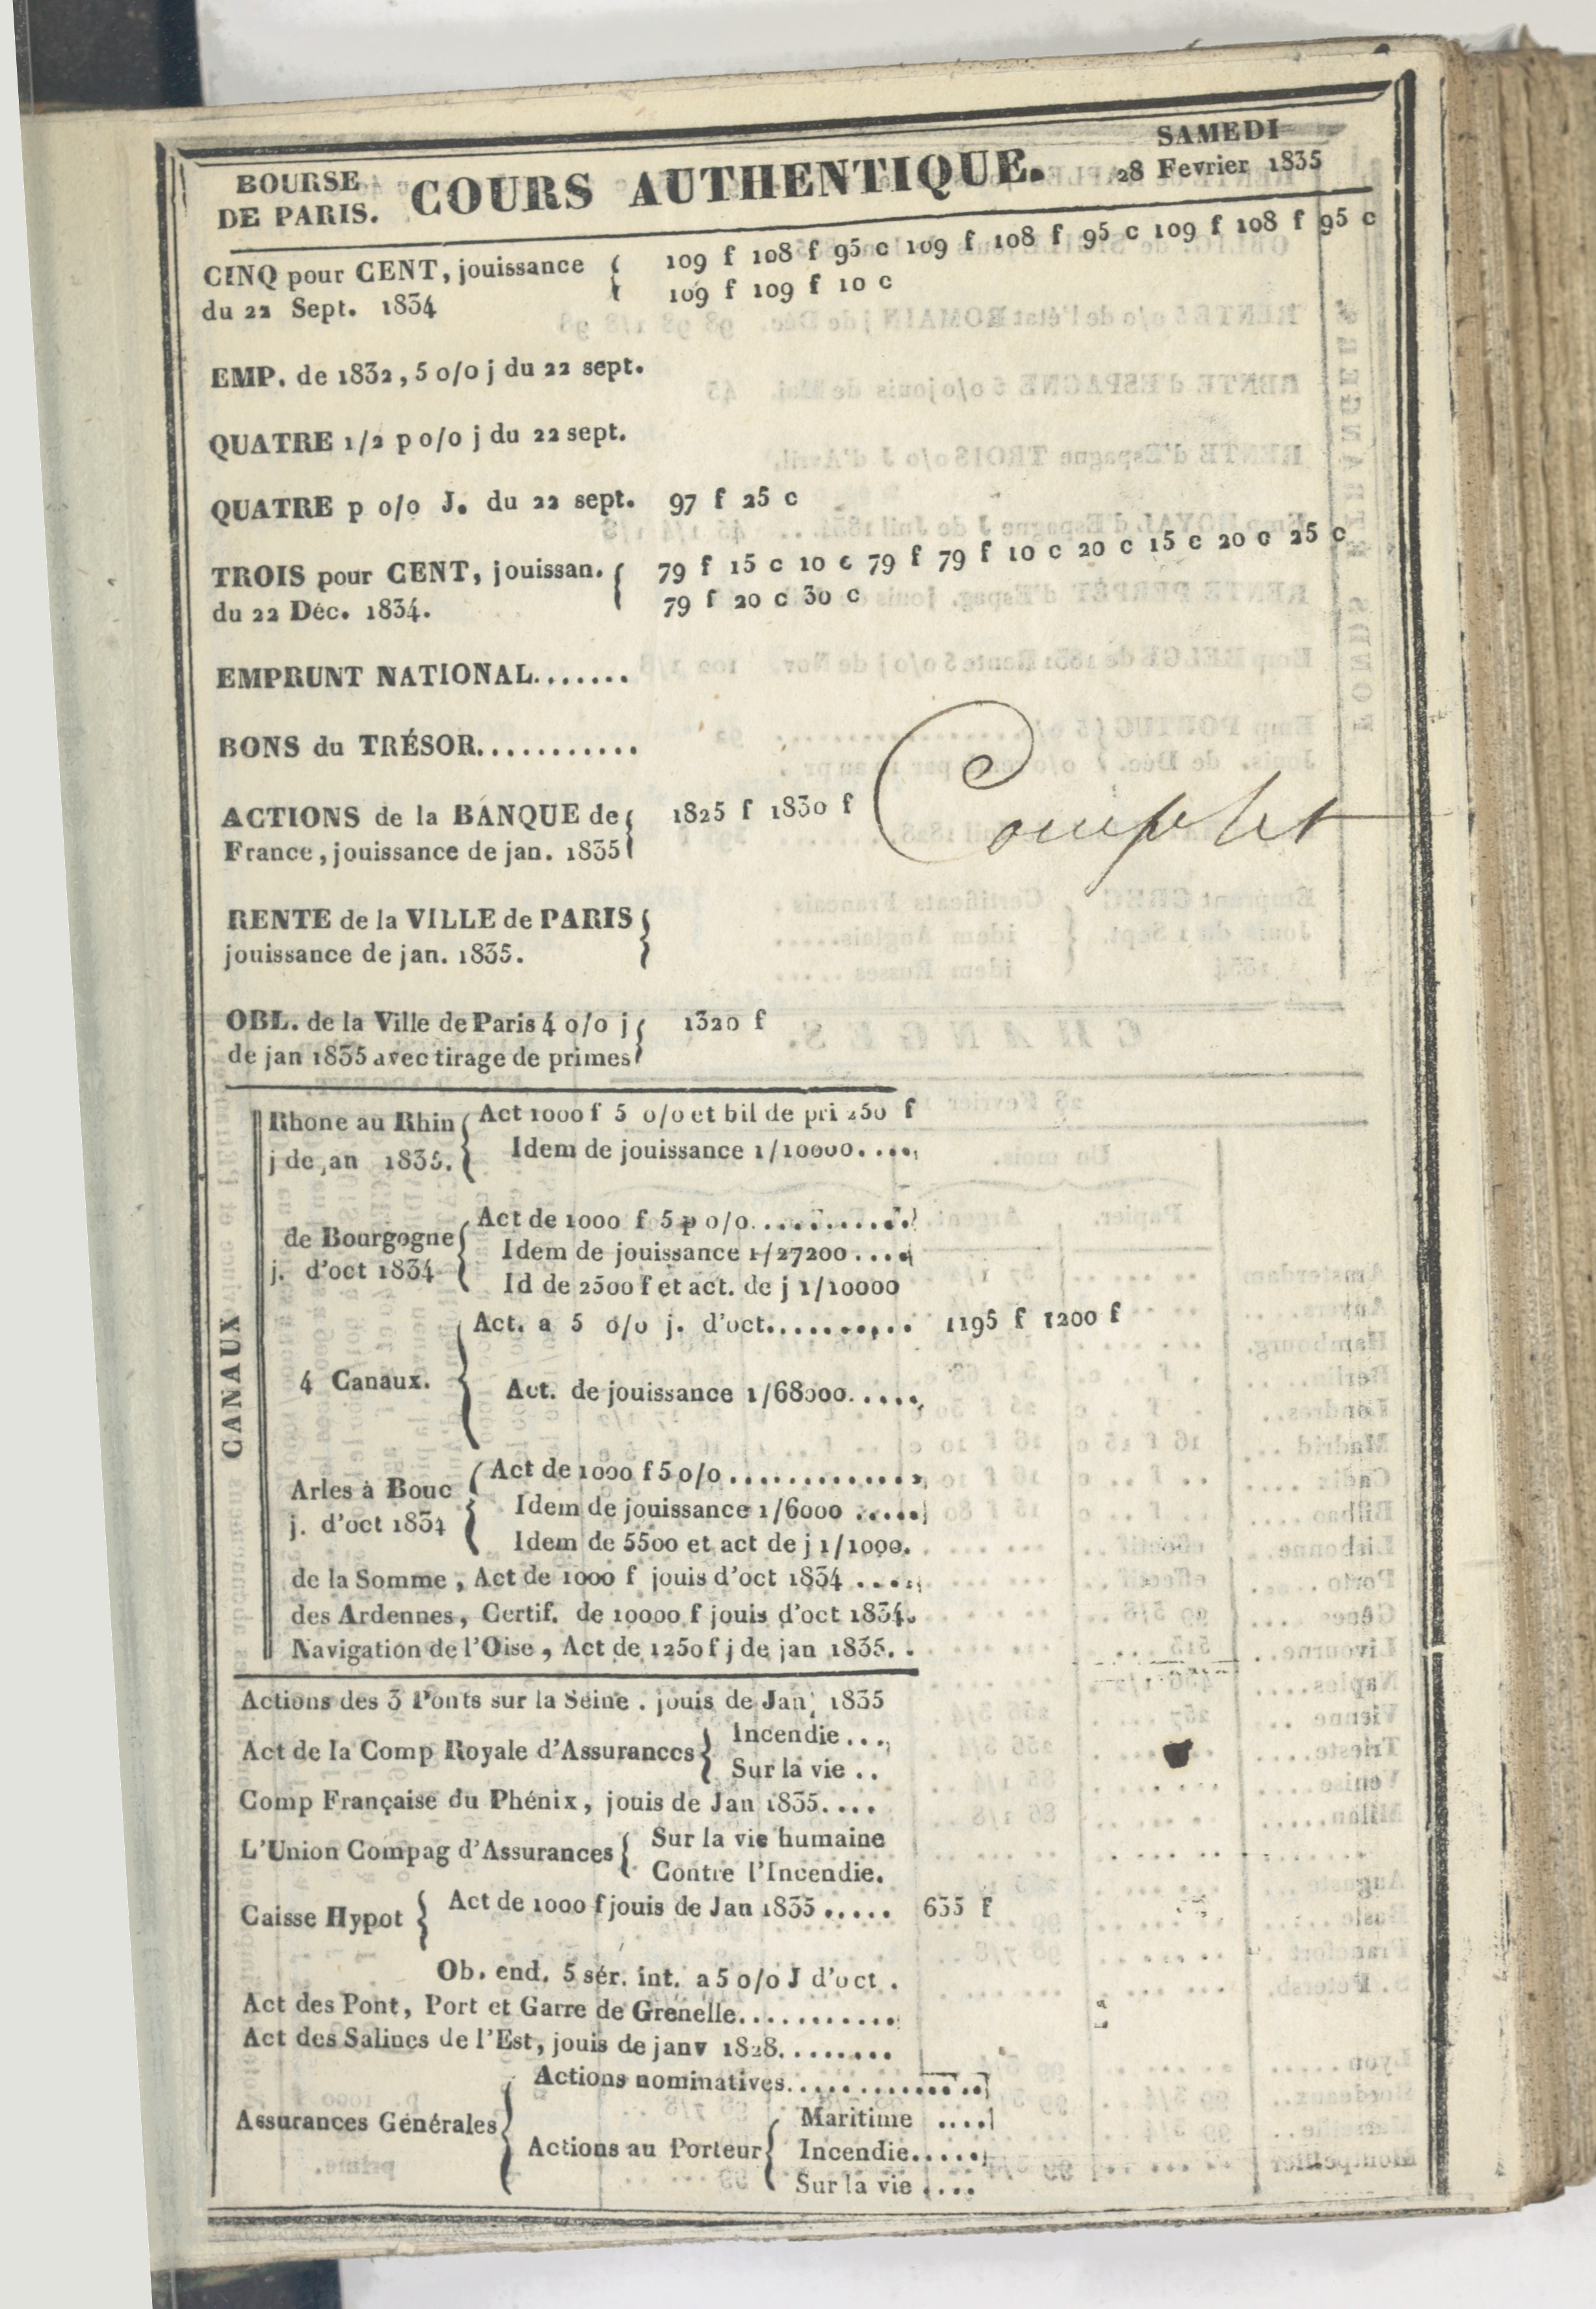 BOURSE DE PARIS. COURS AUTHENTIQUE. SAMEDI 28 Fevrier 1835
CINQ pour CENT, jouissance { 109 f 108 f 95 c 109 f 108 f 95 c 109 f 108 f 95 c
du 22 Sept. 1834 109 f 109 f 10 c
EMP. de 1832, 5 o/o j du 22 sept.
QUATRE 1/2 p o/o j du 22 sept.
QUATRE p o/o J. du 22 sept. 97 f 25 c
TROIS pour CENT, jouissan. { 79 f 15 c 10 c 79 f 79 f 10 c 20 c 15 c 20 c 25 c
du 22 Déc. 1834. 79 f 20 c 30 c
EMPRUNT NATIONAL.......
BONS du TRÉSOR...........
ACTIONS de la BANQUE de { 1825 f 1830 f
France, jouissance de jan. 1835
Complet
RENTE de la VILLE de PARIS {
jouissance de jan. 1835.
OBL. de la Ville de Paris 4 o/o j { 1320 f
de jan 1835 avec tirage de primes
CANAUX
Rhone au Rhin { Act 1000 f 5 o/o et bil de pri 250 f
j de jan 1835. Idem de jouissance 1/10000....
de Bourgogne { Act de 1000 f 5 p o/o...........
j. d'oct 1834 Idem de jouissance 1/27200....
Id de 2500 f et act. de j 1/10000
4 Canaux. { Act. a 5 o/o j. d'oct.......... 1195 f 1200 f
Act. de jouissance 1/68000.....
Arles à Bouc { Act de 1000 f 5 o/o.............
j. d'oct 1834 Idem de jouissance 1/6000 .....
Idem de 5500 et act de j 1/1000.
de la Somme, Act de 1000 f jouis d'oct 1834 ....
des Ardennes, Certif. de 10000 f jouis d'oct 1834.
Navigation de l'Oise, Act de 1250 f j de jan 1835..
Actions des 3 Ponts sur la Seine. jouis de Jan, 1835
Act de la Comp Royale d'Assurances { Incendie...
Sur la vie..
Comp Française du Phénix, jouis de Jan 1835....
L'Union Compag d'Assurances { Sur la vie humaine
Contre l'Incendie.
Caisse Hypot { Act de 1000 f jouis de Jan 1835..... 635 f
Ob. end. 5 sér. int. a 5 o/o J d'oct.
Act des Pont, Port et Garre de Grenelle...........
Act des Salines de l'Est, jouis de janv 1828........
Assurances Générales { Actions nominatives..............
Actions au Porteur { Maritime ....
Incendie.....
Sur la vie ....